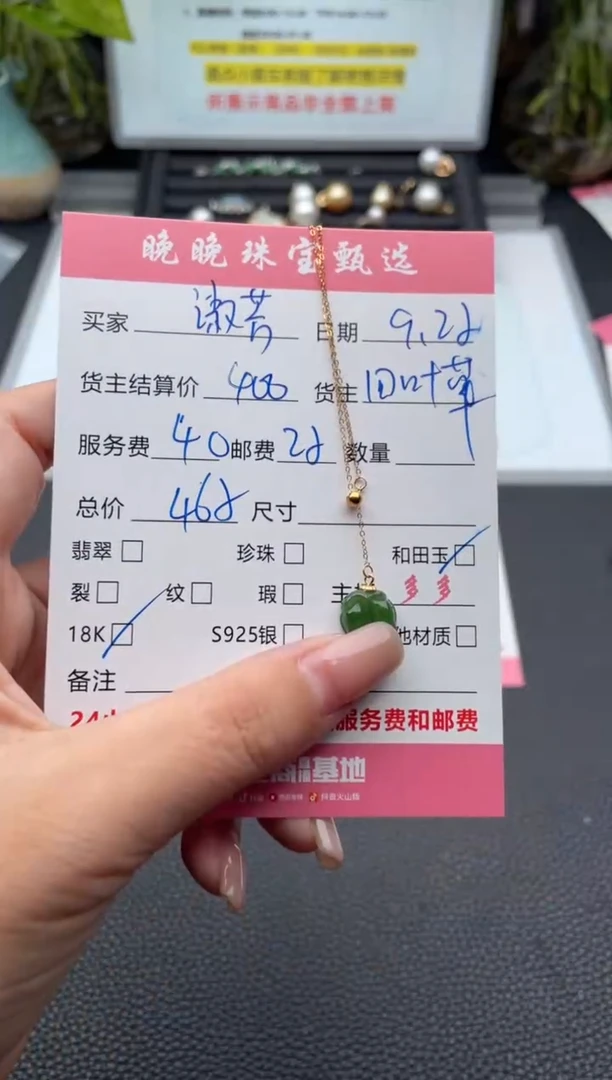 晚晚珠宝甄选
买家 淑芳 日期 9.28
货主结算价 400 货主 四叶草
服务费 40 邮费 28 数量
总价 468 尺寸
翡翠 珍珠 和田玉
裂 纹 瑕 主 多多
18K S925银 他材质
备注
服务费和邮费
基地
抖音火山版